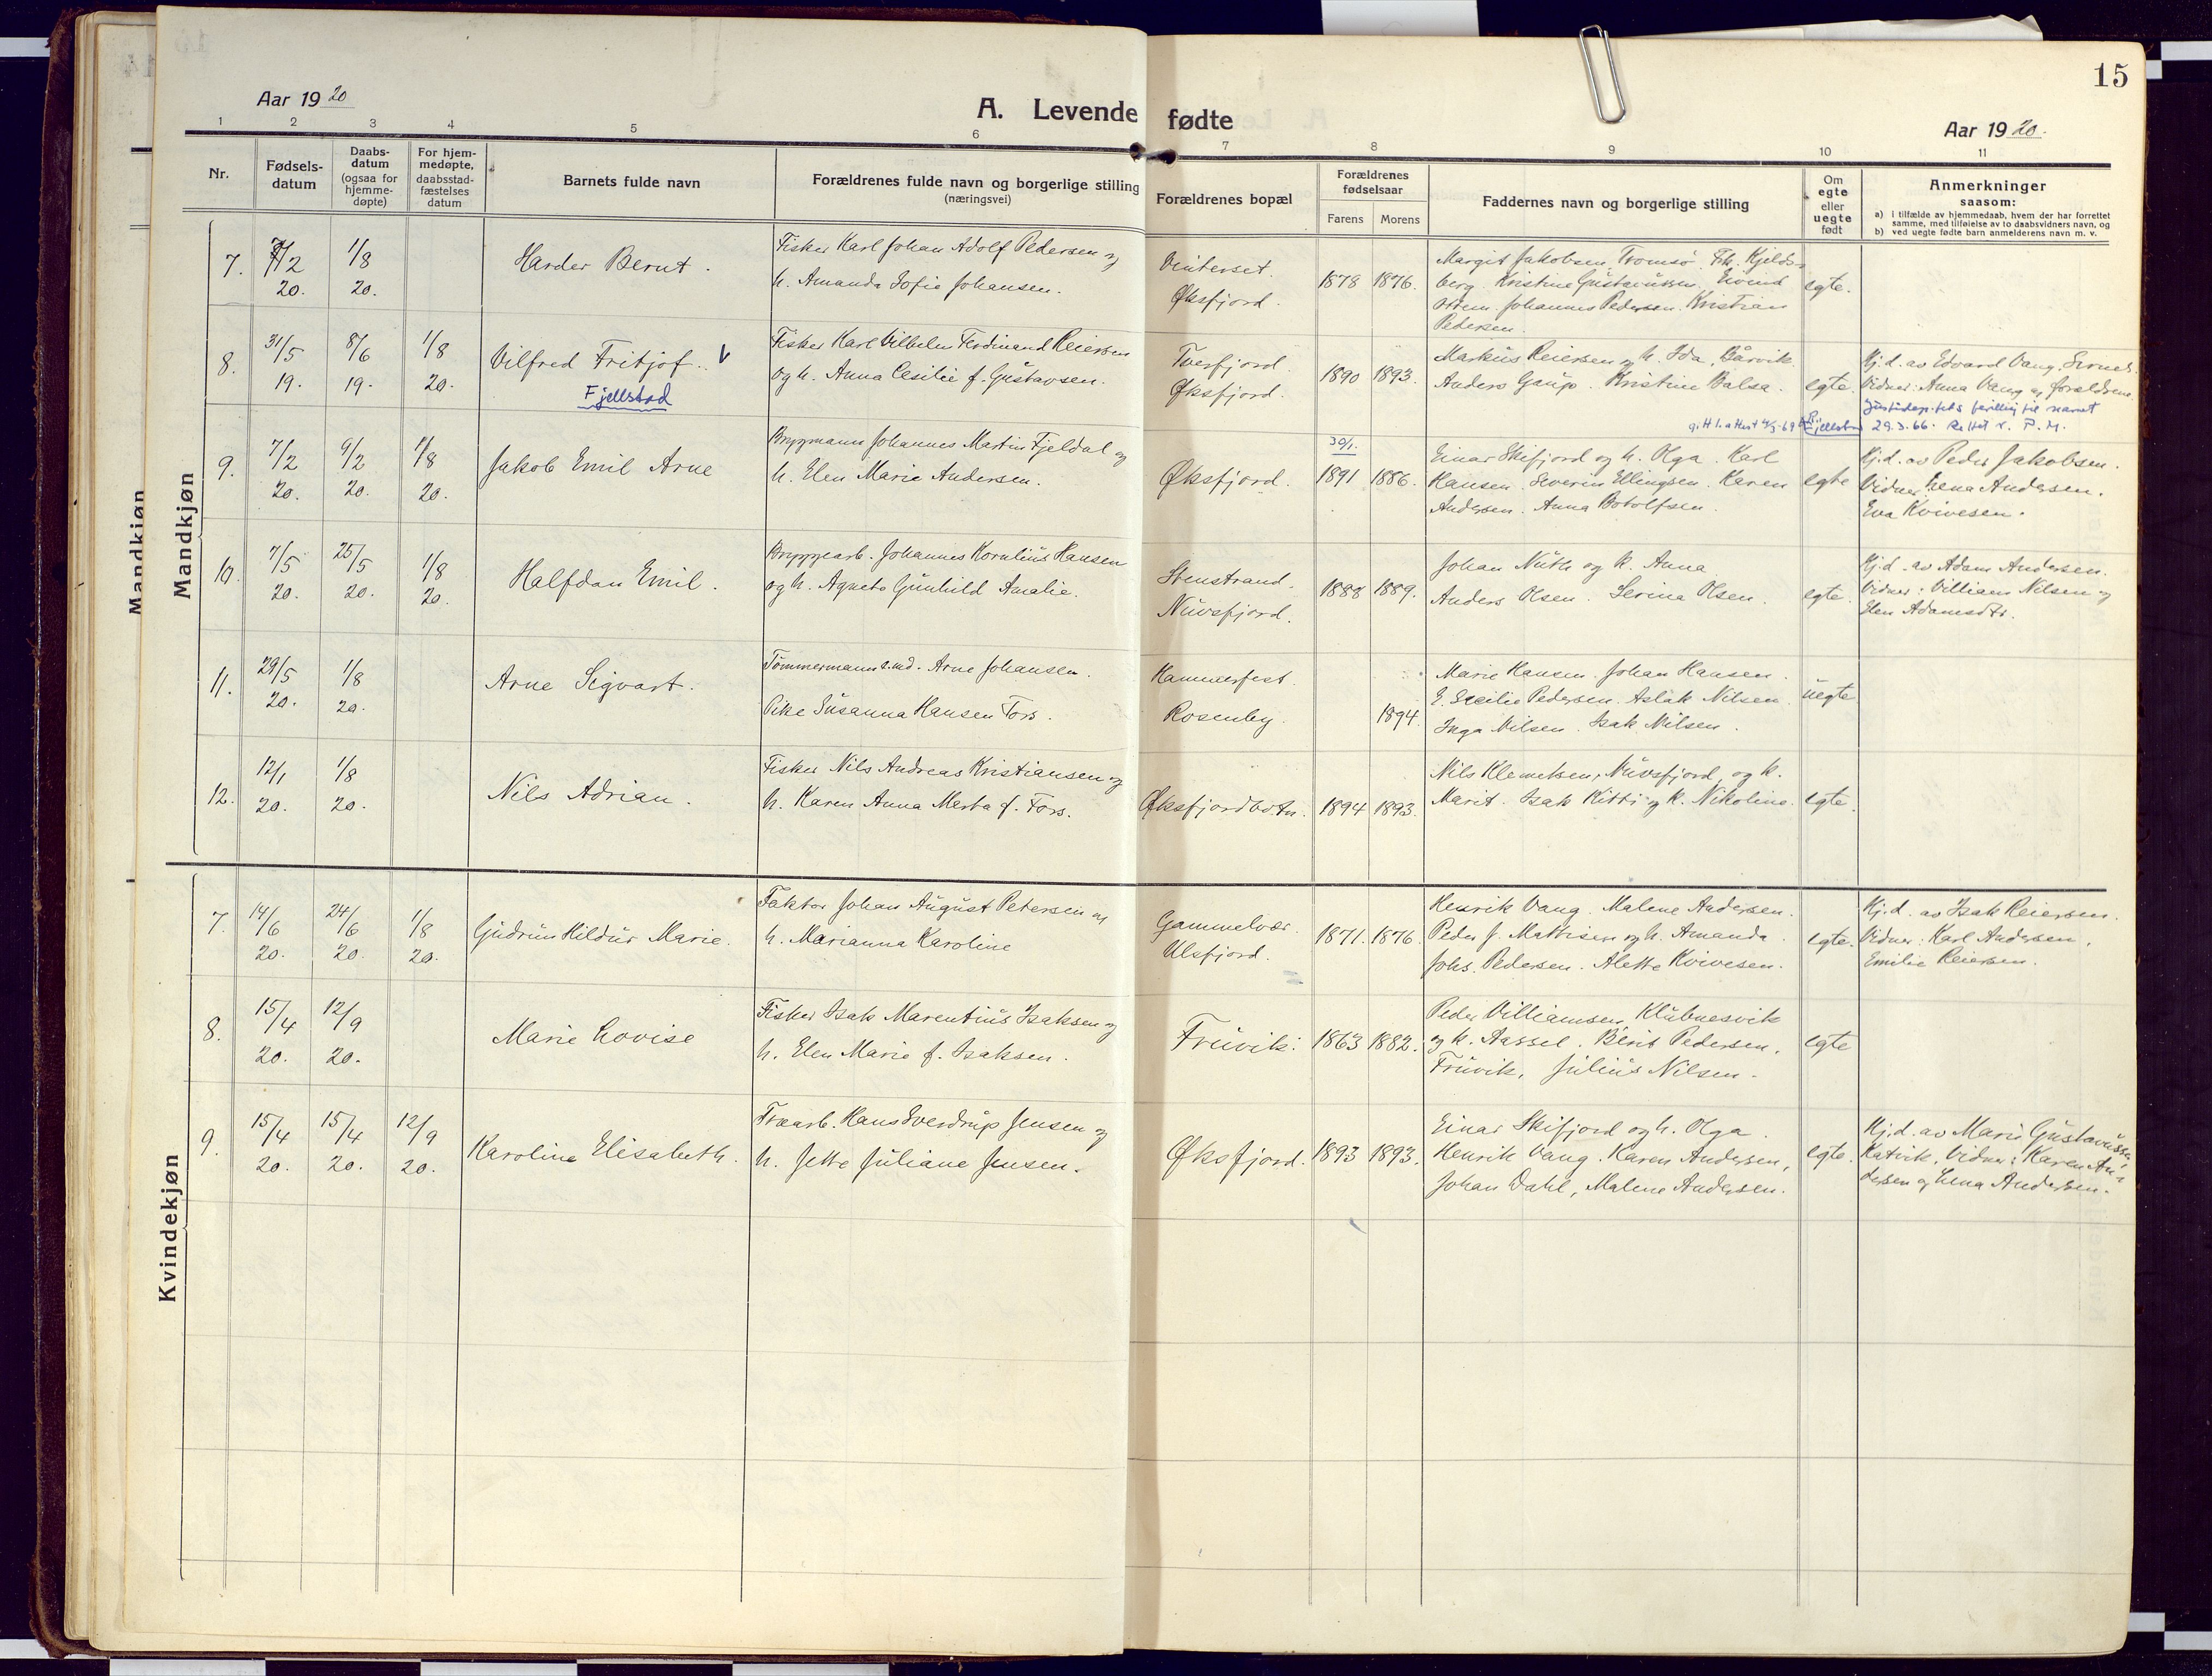 15
Aar 1920
A. Levende fødte
Aar 1920.
1 2 3 4 5 6 7 8 9 10 11
Nr.
Fødsels-
datum
Daabs-
datum
(ogsaa for
hjemme-
døpte)
For hjem-
medøpte,
daabsstad-
fæstelses
datum
Barnets fulde navn
Forældrenes fulde navn og borgerlige stilling
(næringsvei)
Forældrenes bopæl
Forældrenes
fødselsaar
Farens Morens
Faddernes navn og borgerlige stilling
Om
egte
eller
uegte
født
Anmerkninger
saasom:
a) i tilfælde av hjemmedaab, hvem der har forrettet
samme, med tilføielse av to daabsvidners navn, og
b) ved uegte fødte barn anmelderens navn m. v.
Mandkjøn
Mandkjøn
7.
/2
20.
1/8
20.
Harder Bernt.
Fisker Karl Johan Adolf Pedersen og
h. Amanda Sofie Johansen.
Vinterset.
Øksfjord.
1878 1876.
Margit Jakobsen Tromsø. Fr. Kjelds-
berg. Kristine Gustavussen. Eivind
Johannes Pedersen. Kristian
Pedersen.
egte.
8.
31/5
19.
8/6
19.
1/8
20.
Vilfred Fritjof.. V
Fjellstad
Fisker Karl Vilhelm Ferdinand Reiersen
og h. Anna Cesilie f. Gustavsen.
Tverfjord.
Øksfjord.
1890 1893.
Markus Reiersen og h. Ida, Barvik.
Anders Gaup. Kristine Balsa.
egte.
Hj. d. av Edvard Vang, Sernes.
Vidner: Anna Vang og forældrene.
Justisdep.tets bevilling til navnet
Fjellstad 29.3.66. Rettet v. P. M.
9.
7/2
20.
9/2
20.
1/8
20.
Jakob Emil Arne
Bryggmann Johannes Martin Fjeldal og
h. Elen Marie Andersen.
Øksfjord.
30/1.
1891 1886.
Einar Skifjord og h. Olga. Karl
Hansen. Severin Ellingsen. Karen
Andersen. Anna Botolfsen.
egte
Hj. d. av Peder Jakobsen.
Vidner: Lena Andersen.
Eva Kvivesen.
10.
7/5
20.
25/5
20.
1/8
20.
Halfdan Emil.
Bryggearb. Johannes Kornlius Hansen
og h. Agnete Gunhild Amalie.
Stenstrand.
Nuvsfjord.
1888 1889.
Johan Muth og k. Anna
Anders Olsen. Serina Olsen.
egte.
Hj. d. av Adam Andersen.
Vidner: Villiam Nilsen og
Elen Adamsdtr.
11.
29/5
20.
1/8
20.
Arne Sigvart.
Tømmermann s.md. Arne Johansen.
Pike Susanna Hansen Fors.
Hammerfest.
Rosenby.
1894.
Marie Hansen. Johan Hansen.
E. Secilie Pedersen. Aslak Nilsen.
Inga Nilsen. Isak Nilsen.
uegte
12.
12/1
20.
1/8
20.
Nils Adrian.
Fisker Nils Andreas Kristiansen og
h. Karen Anna Merta f. Fors.
Øksfjordbotn.
1894 1893.
Nils Klemetsen, Nuvsfjord, og k.
Marit. Isak Kitti og k. Nikoline.
egte.
Kvindekjøn
7.
14/6
20.
24/6
20.
1/8
20.
Gudrun Hildur Marie.
Faktor Johan August Petersen og
h. Marianna Karoline
Gammelvær.
Ulsfjord.
1871. 1876.
Henrik Vang. Malene Andersen.
Peder J. Mathisen og h. Amanda.
Johs. Pedersen. Alette Kvivesen.
egte.
Hj. d. av Isak Reiersen.
Vidner: Karl Andersen.
Emilie Reiersen.
8.
15/4
20.
12/9
20.
Marie Lovise
Fisker Isak Marentius Isaksen og
h. Elen Marie f. Isaksen.
Fruvik.
1863 1882.
Peder Villiamsen, Klubnesvik
og k. Aassel. Berit Pedersen,
Fruvik. Julius Nilsen.
egte
9.
15/4
20.
15/4
20.
12/9
20.
Karoline Elisabeth.
Træarb. Hans Sverdrup Jensen og
h. Jette Juliane Jensen.
Øksfjord.
1893 1893.
Einar Skifjord og h. Olga.
Henrik Vang. Karen Andersen,
Johan Dahl, Malene Andersen.
egte.
Hj. d. av Marie Gustavussen
Katvik. Vidner: Karen An-
dersen og Lena Andersen.